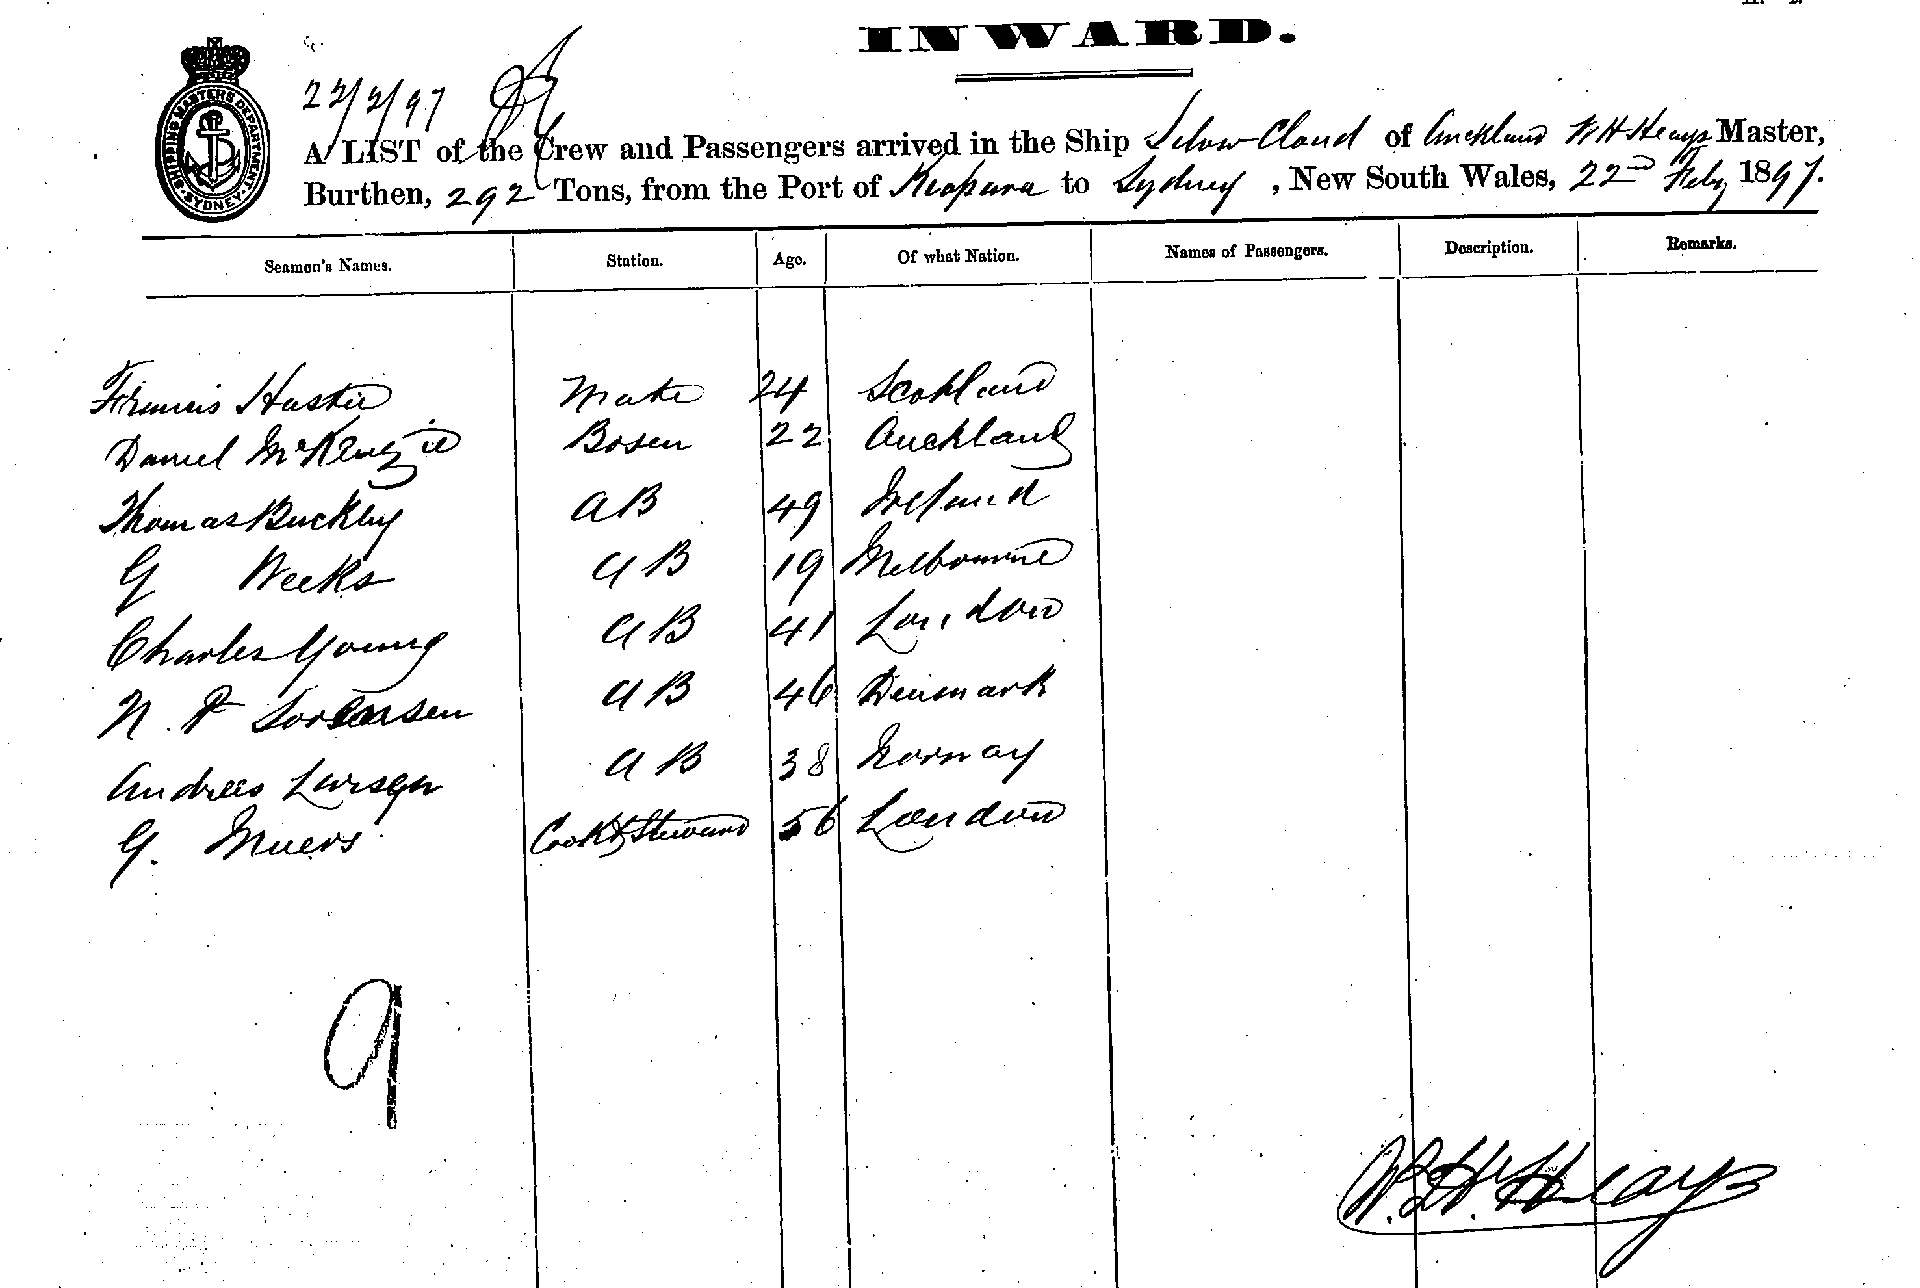 INWARD.
SHIPPING MASTERS DEPARTMENT SYDNEY
22/2/97
A LIST of the Crew and Passengers arrived in the Ship Silver Cloud of Auckland W H Heays Master,
Burthen, 292 Tons, from the Port of Kiapara to Sydney, New South Wales, 22nd Feby 1897.
Seamen's Names. Station. Age. Of what Nation. Names of Passengers. Description. Remarks.
Francis Hastie Mate 24 Scotland
Daniel McKenzie Bosen 22 Auckland
Thomas Buckley AB 49 Ireland
G Weeks AB 19 Melbourne
Charles Young AB 41 London
N. P Sorensen AB 46 Denmark
Andrees Larsen AB 38 Norway
G. Cook & Steward 56 London
9
Heays